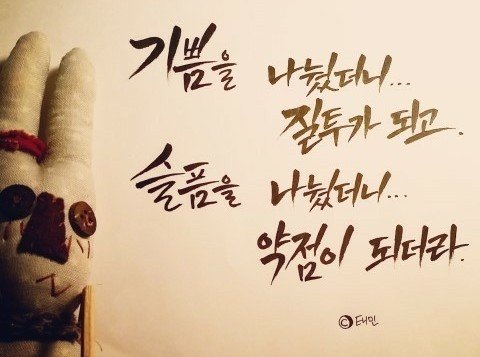 기쁨을 나눴더니...
질투가 되고.
슬픔을 나눴더니...
약점이 되더라.
ⓒ터민